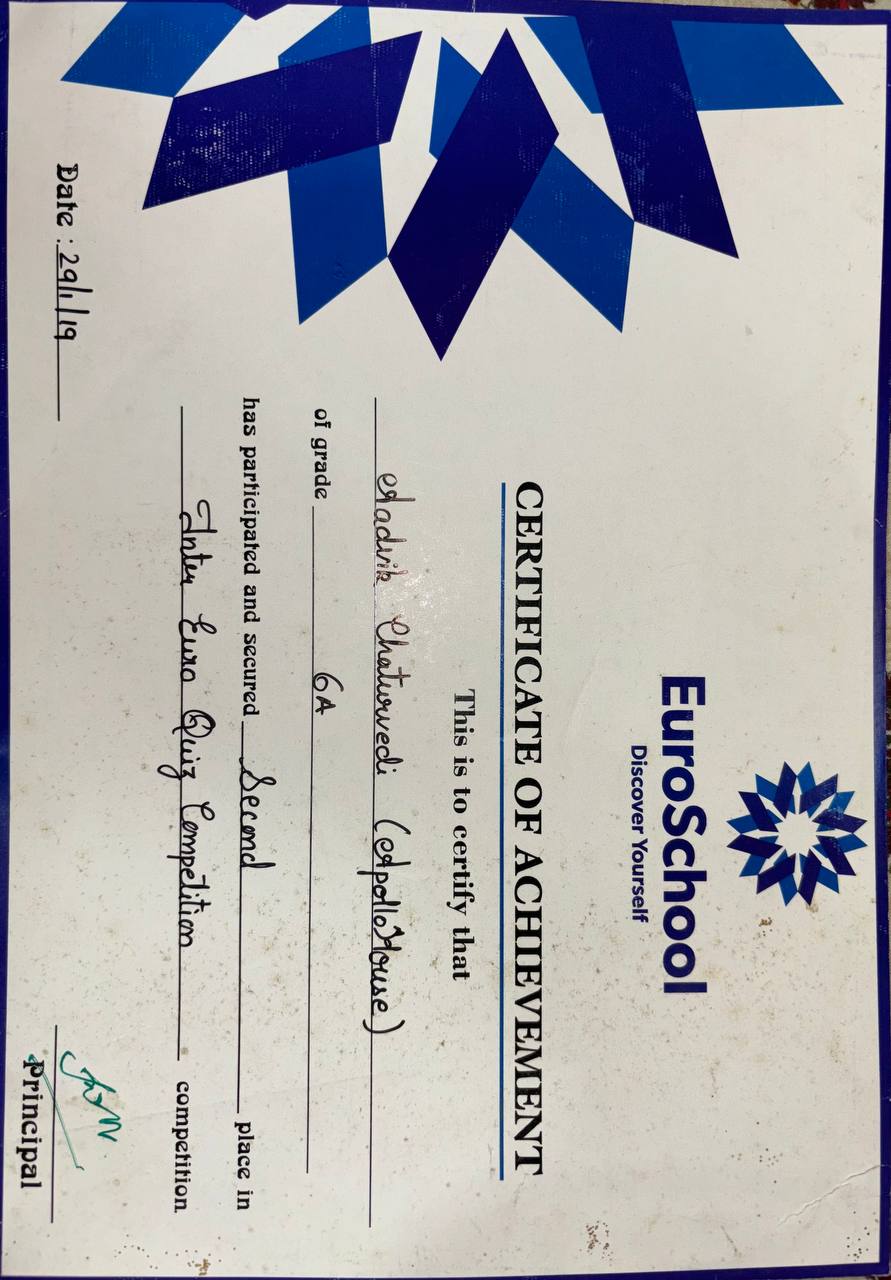 EuroSchool
Discover Yourself
CERTIFICATE OF ACHIEVEMENT
This is to certify that
Aadvik Chaturvedi (Apollo House)
of grade 6A
has participated and secured Second place in
Inter Euro Quiz Competition competition.
Date : 29/1/19
Principal